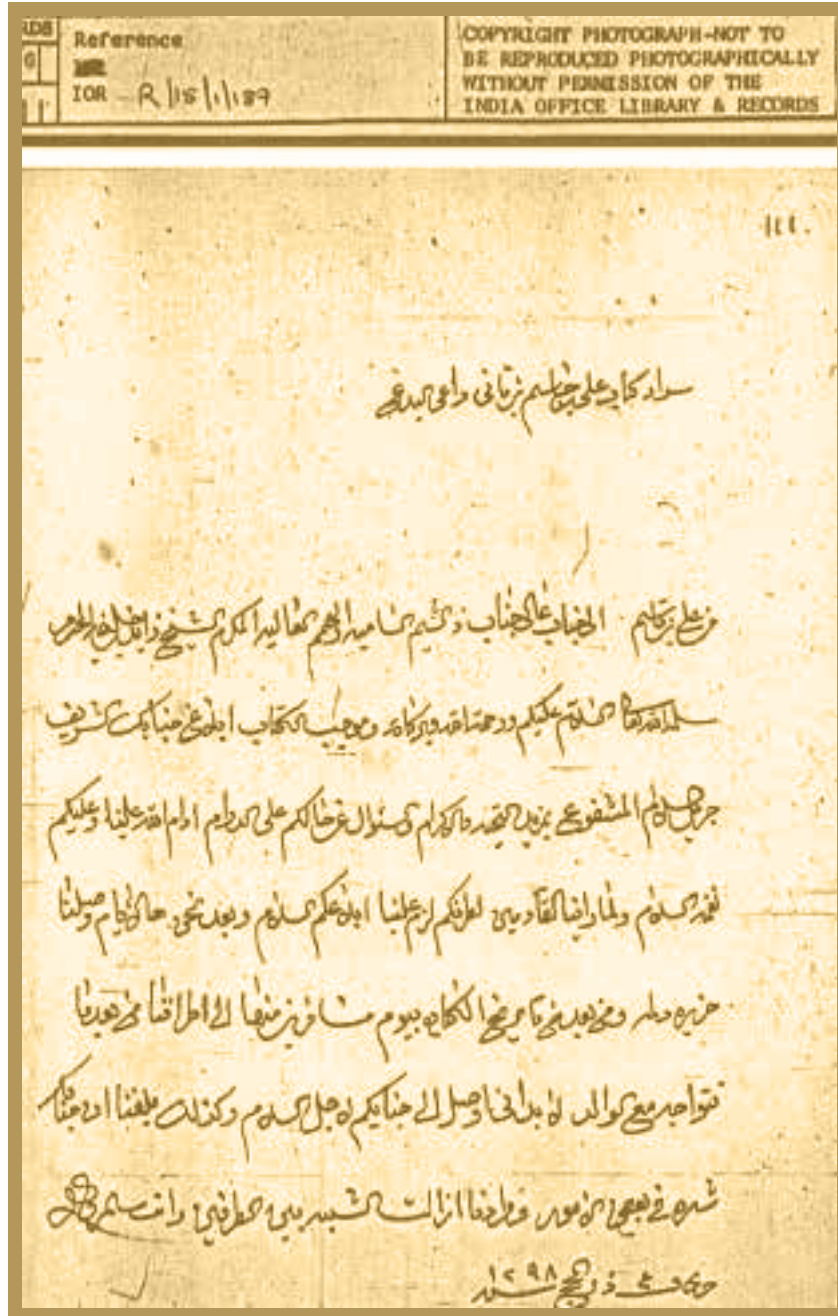 RDS
Reference
COPYRIGHT PHOTOGRAPH-NOT TO
G
BE REPRODUCED PHOTOGRAPHICALLY
IOR R/15/1/189
WITHOUT PERMISSION OF THE
INDIA OFFICE LIBRARY & RECORDS
سواد كتاب علي بن جاسم بن ثاني
من علي بن قاسم الى جناب عالي الجناب والشيم السامية والهمم العالية المكرم الشيخ زايد بن خليفه المحترم
سلمه الله تعالى السلام عليكم ورحمة الله وبركاته وموجب الكتاب ابلاغ جنابك الشريف
جزيل السلام المشفوع بمزيد التحيه والاكرام والسؤال عن حالكم على الدوام ادام الله علينا وعليكم
السلام ولما راينا القادمين لطرفكم لزم علينا ابلاغكم السلام وبعد نحن هالايام وصلنا
جزيره دلمه ومن بعد تاريخ الكتاب بيوم مسافرين منها الى اطرافنا من بعدما
نتواجه مع الوالد لا بد اني اوصل الى جنابكم لاجل السلام وكذلك بلغنا ان جنابكم
شره في بعض الامور ومرادنا ازالت الشبه بين الطرفين وانت سالم
ذي الحج سنة ١٢٩٨